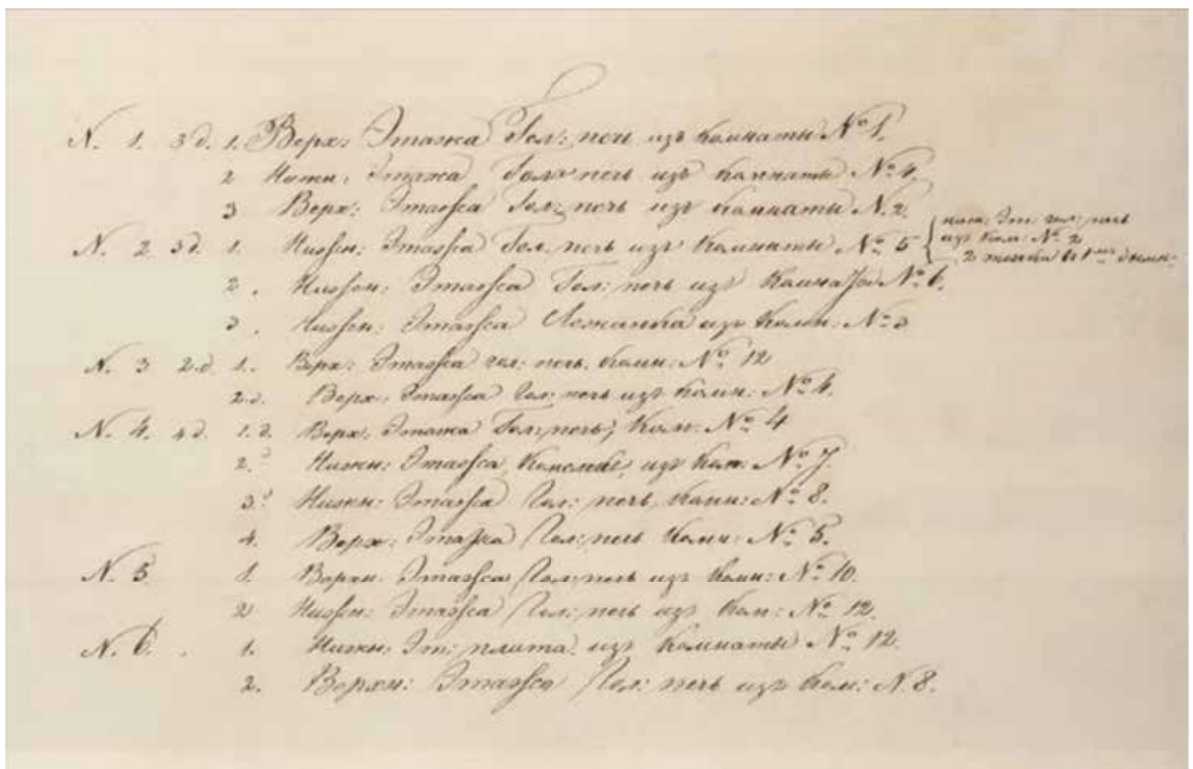 N. 1. 3 д. 1. Верх: Этажа Гол: печь изъ комнаты № 1.
2 Нижн: Этажа Гол: печь изъ комнаты № 4.
3 Верх: Этажа Гол: печь изъ комнаты N. 2.
N. 2 3 д. 1. Нижн: Этажа Гол: печь изъ Комнаты № 5 {
ниж: Эт. гол: печь
изъ Ком: № 2
2. Нижн: Этажа Гол: печь изъ Комнаты № 6.
3. Нижн: Этажа Лежанка изъ Комн: № 3
N. 3 2 д. 1. Верх: Этажа гол: печь комн: № 12
2 д. Верх: Этажа Гол: печь изъ комн: № 4.
N. 4. 4 д. 1. д. Верх: Этажа Гол: печь, Ком: № 4
2. Нижн: Этажа изъ Ком: № 7.
3. Нижн: Этажа Гол: печь Комн: № 8.
4. Верх: Этажа Гол: печь Комн: № 5.
N. 5 1. Верхн: Этажа Гол: печь изъ Комн: № 10.
2 Нижн: Этажа Гол: печь изъ Ком: № 12.
N. 6. 1. Нижн: Эт: плита изъ Комнаты № 12.
2. Верхн: Этажа Гол: печь изъ Ком: N. 8.